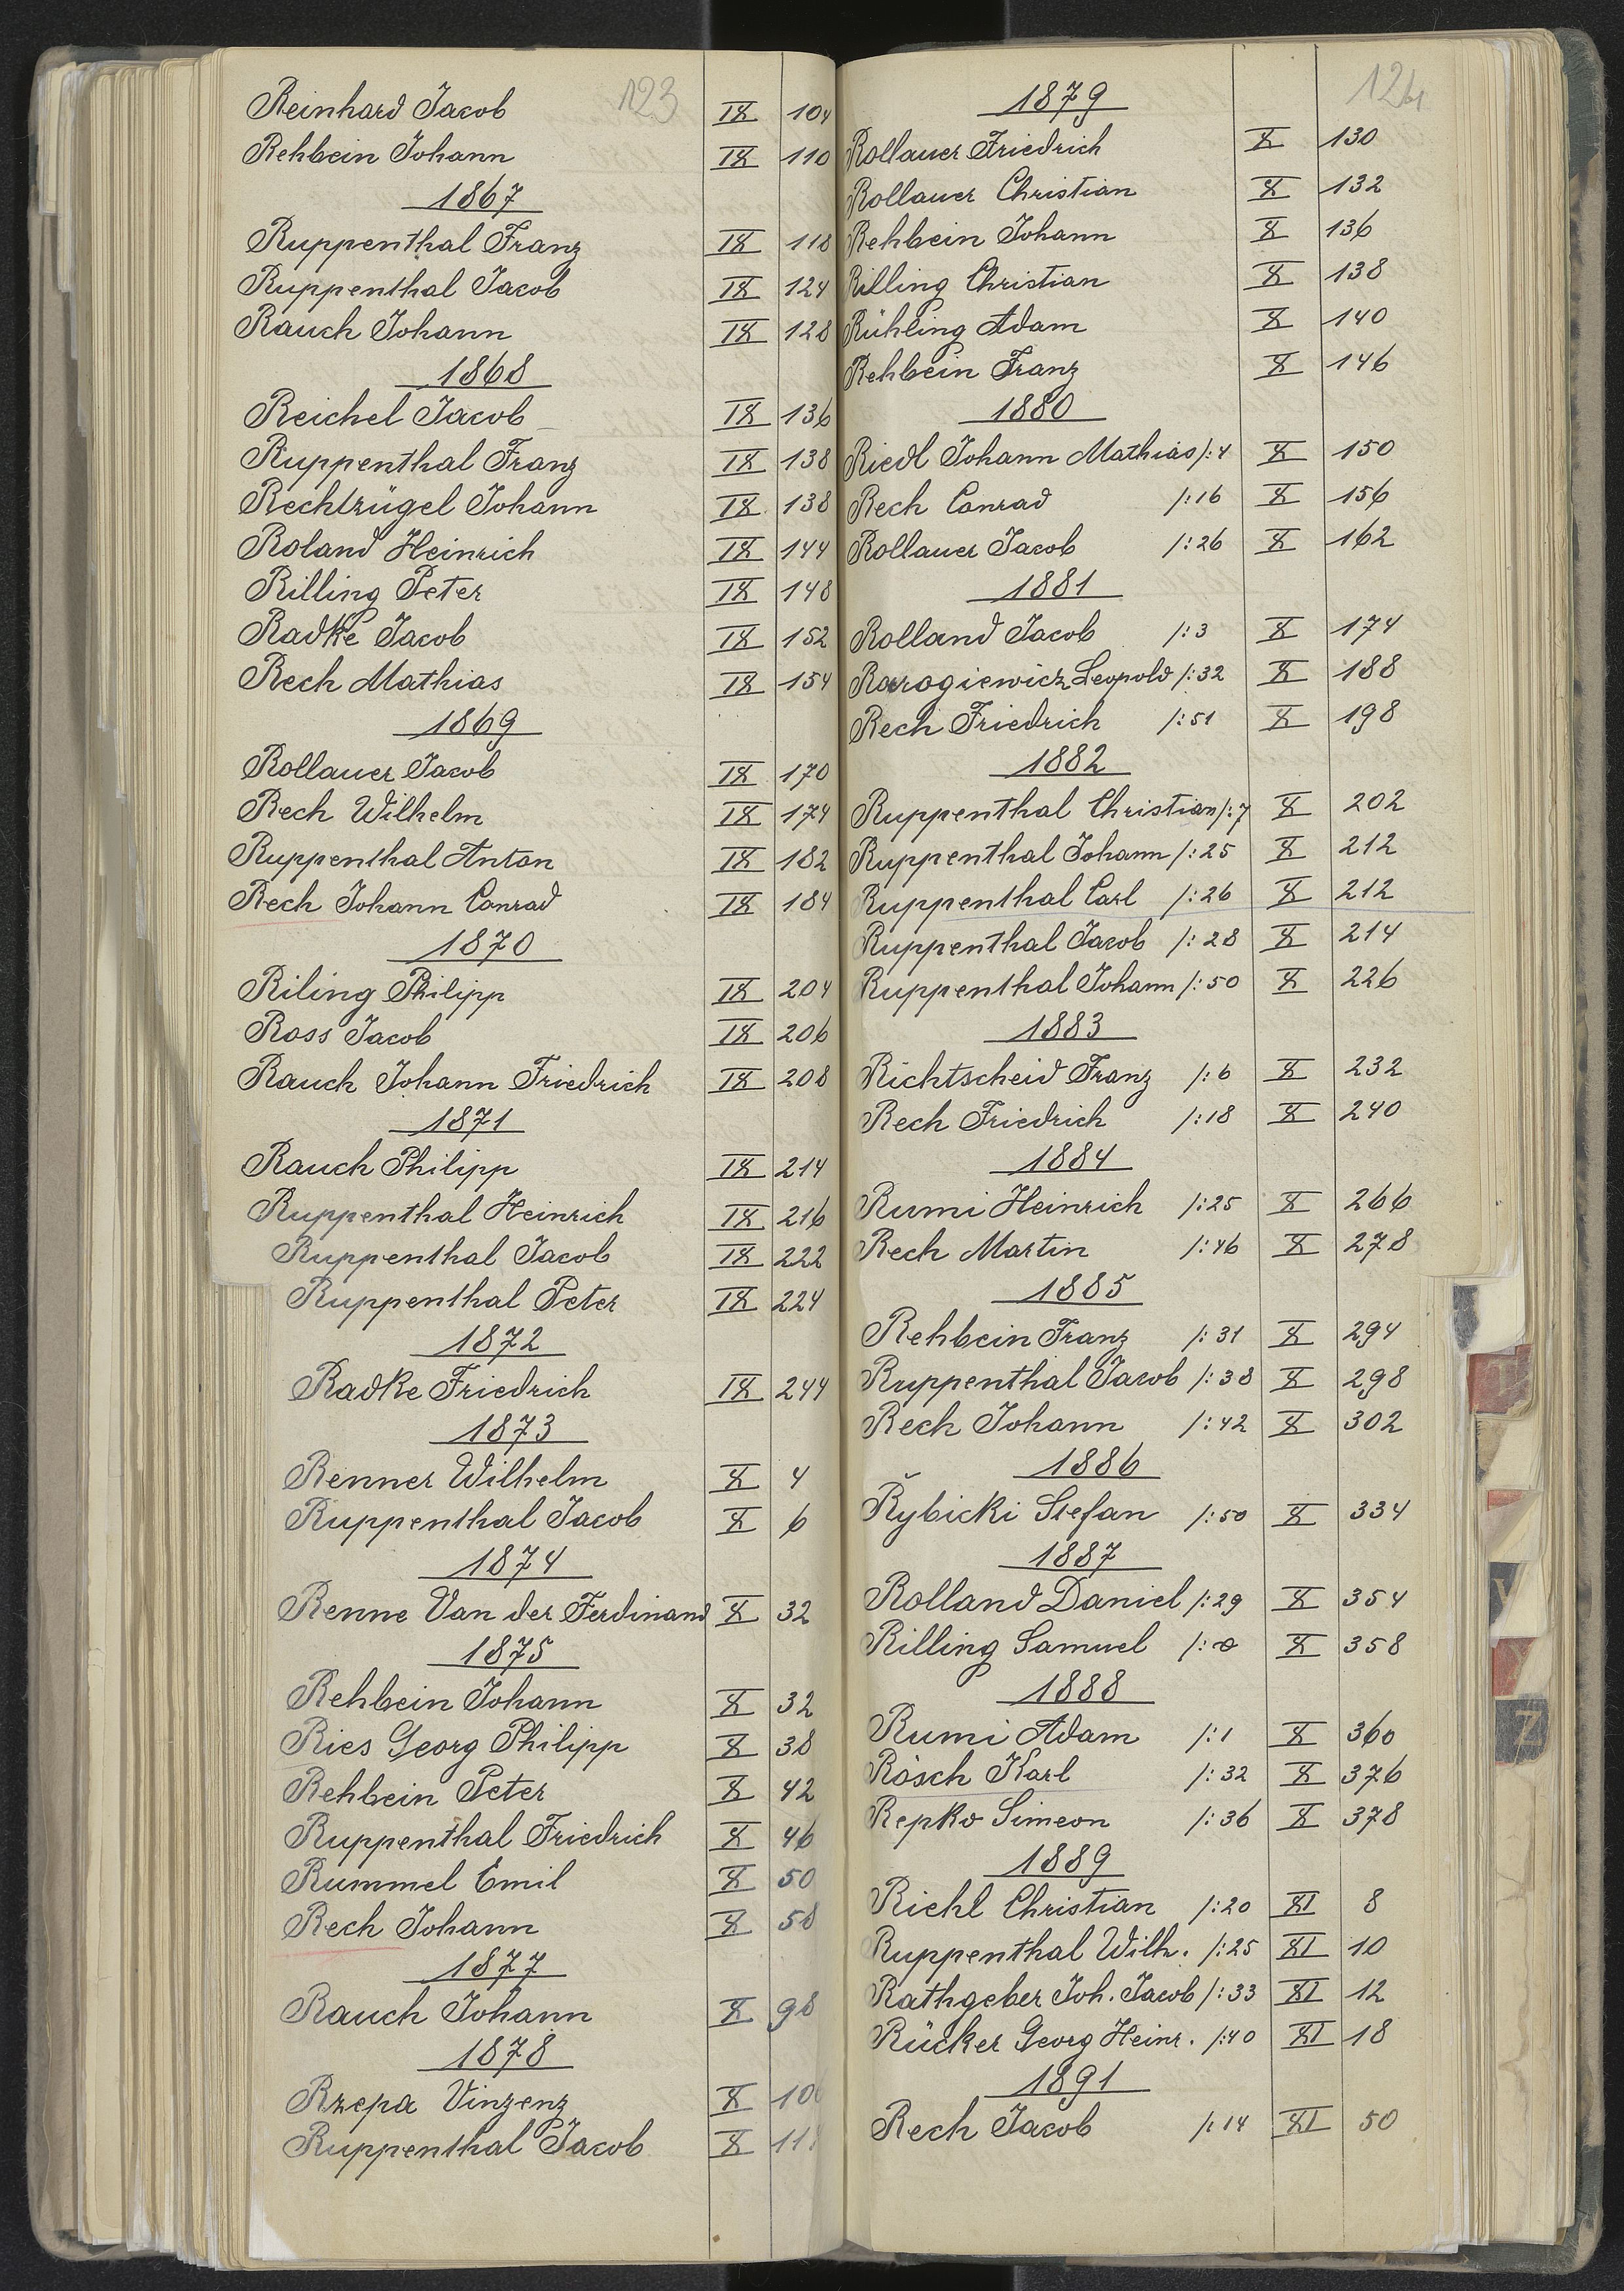 123
Reinhard Jacob IX 104
Rehbein Johann IX 110
1867
Ruppenthal Franz IX 118
Ruppenthal Jacob IX 124
Rauch Johann IX 128
1868
Reichel Jacob IX 136
Ruppenthal Franz IX 138
Rechtrügel Johann IX 138
Roland Heinrich IX 144
Rilling Peter IX 148
Radke Jacob IX 152
Rech Mathias IX 154
1869
Rollauer Jacob IX 170
Rech Wilhelm IX 174
Ruppenthal Anton IX 182
Rech Johann Conrad IX 184
1870
Riling Philipp IX 204
Ross Jacob IX 206
Rauch Johann Friedrich IX 208
1871
Rauch Philipp IX 214
Ruppenthal Heinrich IX 216
Ruppenthal Jacob IX 222
Ruppenthal Peter IX 224
1872
Radke Friedrich IX 244
1873
Renner Wilhelm X 4
Ruppenthal Jacob X 6
1874
Renne Van der Ferdinand X 32
1875
Rehbein Johann X 32
Ries Georg Philipp X 38
Rehbein Peter X 42
Ruppenthal Friedrich X 46
Rummel Emil X 50
Rech Johann X 58
1877
Rauch Johann X 98
1878
Rzepa Vinzenz X
Ruppenthal Jacob X
124
1879
Rollauer Friedrich X 130
Rollauer Christian X 132
Rehbein Johann X 136
Rilling Christian X 138
Rühling Adam X 140
Rehbein Franz X 146
1880
Riedl Johann Mathias /:4 X 150
Rech Conrad /:16 X 156
Rollauer Jacob /:26 X 162
1881
Rolland Jacob /:3 X 174
Leopold /:32 X 188
Rech Friedrich /:51 X 198
1882
Ruppenthal Christian /:7 X 202
Ruppenthal Johann /:25 X 212
Ruppenthal Carl /:26 X 212
Ruppenthal Jacob /:28 X 214
Ruppenthal Johann /:50 X 226
1883
Richtscheid Franz /:6 X 232
Rech Friedrich /:18 X 240
1884
Rumi Heinrich /:25 X 266
Rech Martin /:46 X 278
1885
Rehbein Franz /:31 X 294
Ruppenthal Jacob /:38 X 298
Rech Johann /:42 X 302
1886
Řybicki Stefan /:50 X 334
1887
Rolland Daniel /:29 X 354
Rilling Samuel X 358
1888
Rumi Adam /:1 X 360
Rösch Karl /:32 X 376
Repko Simeon /:36 X 378
1889
Riehl Christian /:20 XI 8
Ruppenthal Wilh. /:25 XI 10
Rathgeber Joh. Jacob /:33 XI 12
Rücker Georg Heinr. /:40 XI 18
1891
Rech Jacob /:14 XI 50
Z